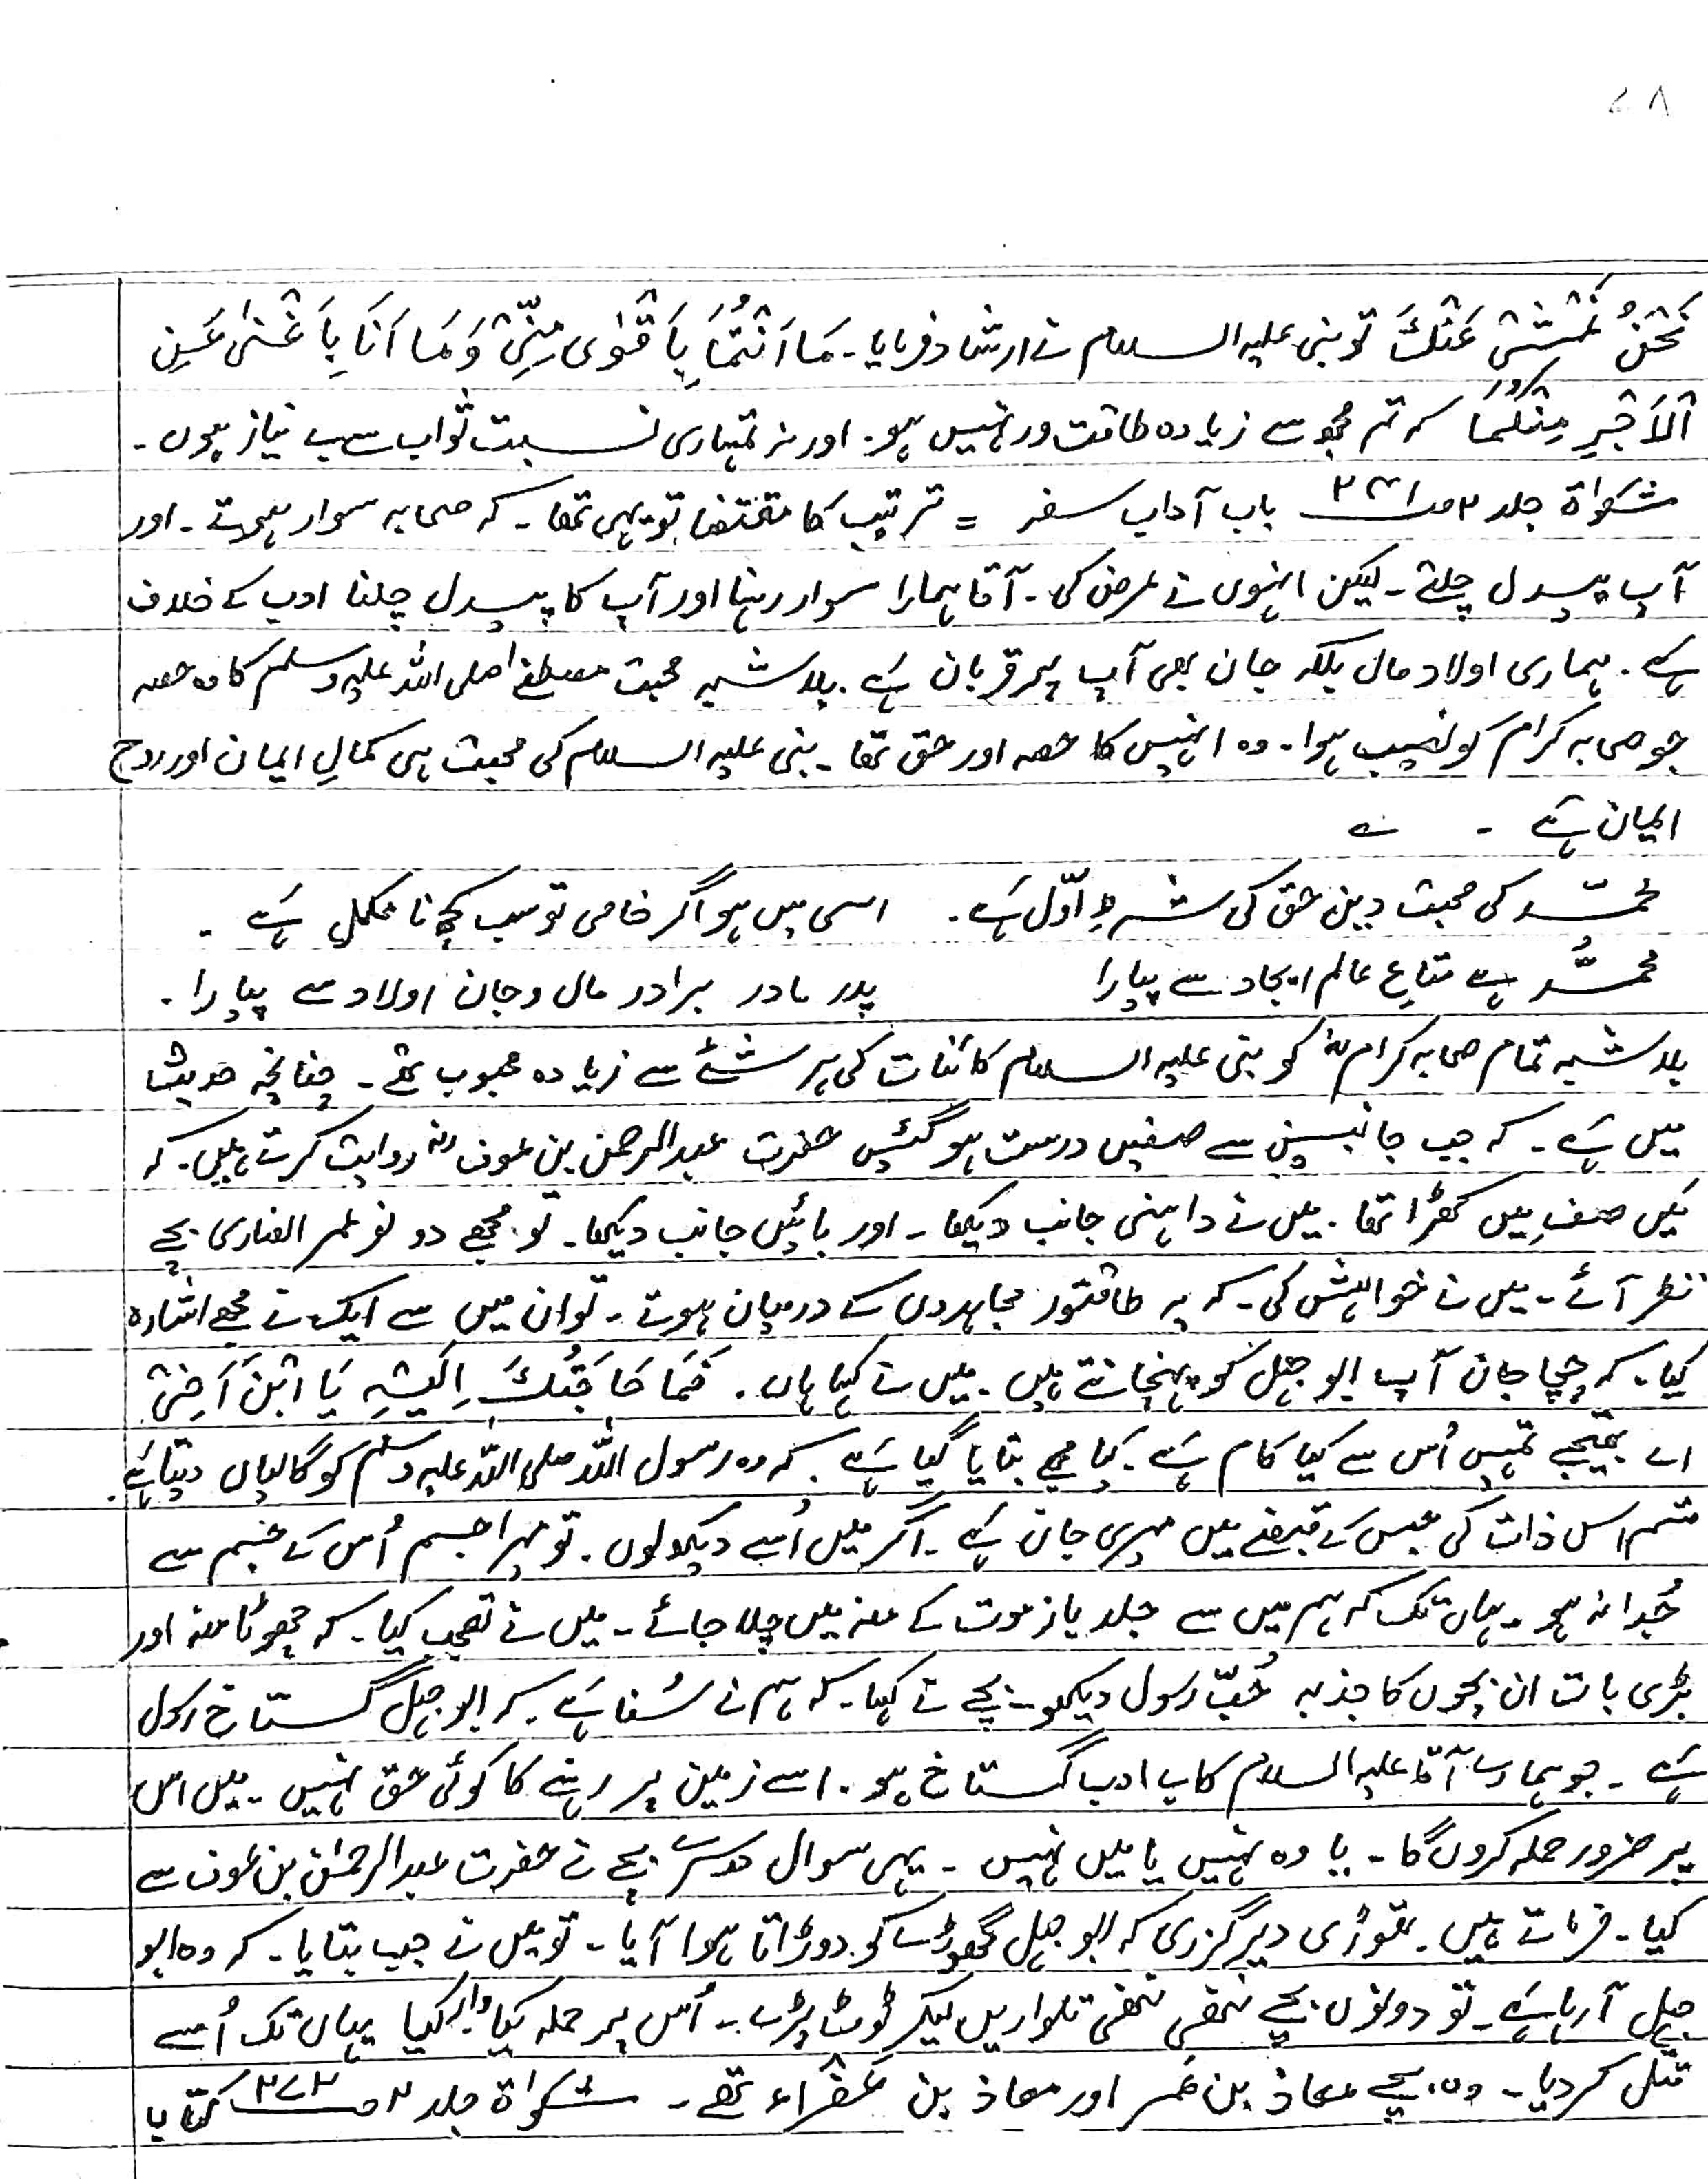 ۷۸
نَحْنُ نَمْشِیْ عَنْكَ تو نبی علیہ السلام نے ارشاد فرمایا۔ مَا اَنْتُمَا بِاَقْوٰی مِنِّیْ وَمَا اَنَا بِاَغْنٰی عَنِ
الْاَجْرِ مِنْكُمَا کہ تم مجھ سے زیادہ طاقت ور نہیں ہو۔ اور نہ تمہاری نسبت ثواب سے بے نیاز ہوں۔
مشکواۃ جلد ۲ باب آداب سفر = ترتیب کا مقتضا تو یہی تھا۔ کہ صحابہ سوار ہوتے۔ اور
آپ پیدل چلتے۔ لیکن انہوں نے عرض کی۔ آقا ہمارا سوار رہنا اور آپ کا پیدل چلنا ادب کے خلاف
ہے۔ ہماری اولاد مال بلکہ جان بھی آپ پر قربان ہے۔ بلاشبہ محبت مصطفےٰ صلی اللہ علیہ وسلم کا وہ حصہ
جو صحابہ کرام کو نصیب ہوا۔ وہ انہیں کا حصہ اور حق تھا۔ نبی علیہ السلام کی محبت ہی کمالِ ایمان اور روح
ایمان ہے۔ ؎
محمّد کی محبت دین حق کی شرطِ اوّل ہے۔ اسی میں ہو اگر خامی تو سب کچھ نامکمل ہے۔
محمدؐ ہے متاعِ عالم ایجاد سے پیارا پدر مادر برادر مال و جان اولاد سے پیارا۔
بلاشبہ تمام صحابہ کرامؓ کو نبی علیہ السلام کائنات کی ہر شئے سے زیادہ محبوب تھے۔ چنانچہ حدیث
میں ہے۔ کہ جب جانبین سے صفیں درست ہو گئیں حضرت عبدالرحمن بن عوفؓ روایت کرتے ہیں۔ کہ
میں صف میں کھڑا تھا۔ میں نے داہنی جانب دیکھا۔ اور بائیں جانب دیکھا۔ تو مجھے دو نو عمر انصاری بچے
نظر آئے۔ میں نے خواہش کی۔ کہ یہ طاقتور مجاہدوں کے درمیان ہوتے۔ تو ان میں سے ایک نے مجھے اشارہ
کیا۔ کہ چچا جان آپ ابو جہل کو پہنچانتے ہیں۔ میں نے کہا ہاں۔ فَمَا حَاجَتُكَ اِلَیْہِ یَا ابْنَ اَخِیْ
اے بھتیجے تمہیں اُس سے کیا کام ہے۔ کہا مجھے بتایا گیا ہے۔ کہ وہ رسول اللہ صلی اللہ علیہ وسلم کو گالیاں دیتا ہے۔
قسم اس ذات کی جس کے قبضے میں میری جان ہے۔ اگر میں اُسے دیکھ لوں۔ تو میرا جسم اُس کے جسم سے
جُدا نہ ہو۔ یہاں تک کہ ہم میں سے جلد باز موت کے منہ میں چلا جائے۔ میں نے تعجب کیا۔ کہ چھوٹا منہ اور
بڑی بات ان بچوں کا جذبہ حُبِّ رسول دیکھو۔ بچے نے کہا۔ کہ ہم نے سُنا ہے۔ کہ ابو جہل گستاخ رسول
ہے۔ جو ہمارے آقا علیہ السلام کا بے ادب گستاخ ہو۔ اسے زمین پر رہنے کا کوئی حق نہیں۔ میں اس
پر ضرور حملہ کروں گا۔ یا وہ نہیں یا میں نہیں۔ یہی سوال دوسرے بچے نے حضرت عبدالرحمٰن بن عوف سے
کیا۔ فرماتے ہیں۔ تھوڑی دیر گزری کہ ابو جہل گھوڑے کو دوڑاتا ہوا آیا۔ تو میں نے جب بتایا۔ کہ وہ ابو
جہل آ رہا ہے۔ تو دونوں بچے ننھی ننھی تلواریں لیکر ٹوٹ پڑے۔ اُس پر حملہ کیا وار کیا یہاں تک اُسے
قتل کر دیا۔ وہ بچے معاذ بن عمر اور معاذ بن عَفْرَاء تھے۔ مشکواۃ جلد ۲